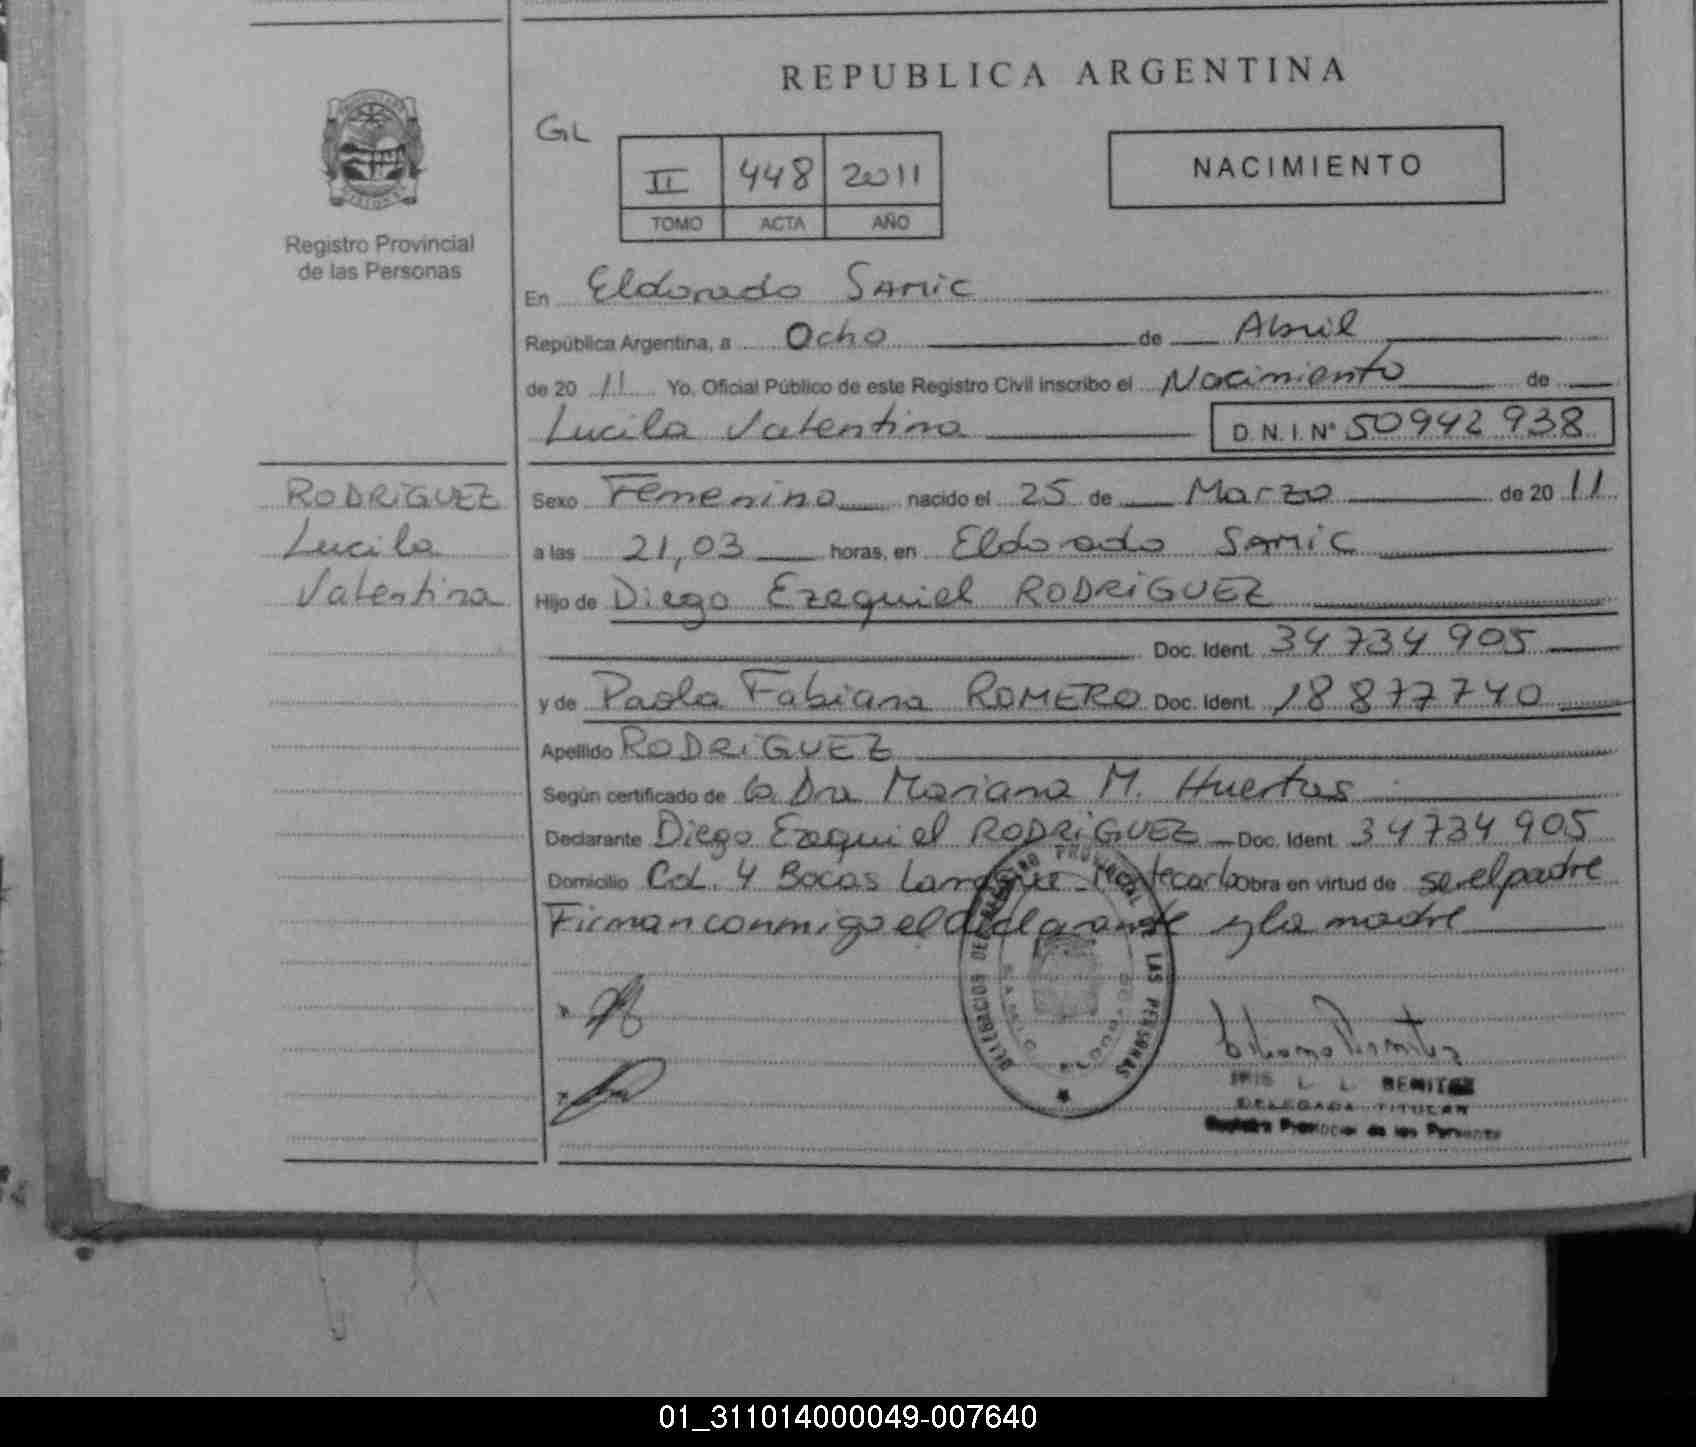 REPUBLICA ARGENTINA
GL
II 448 2011
TOMO ACTA AÑO
NACIMIENTO
Registro Provincial
de las Personas
En Eldorado SAMIC
República Argentina, a Ocho de Abril
de 20 11 Yo, Oficial Público de este Registro Civil inscribo el Nacimiento de
Lucila Valentina D.N.I. N° 50942938
RODRIGUEZ
Lucila
Valentina
Sexo Femenino nacido el 25 de Marzo de 20 11
a las 21,03 horas, en Eldorado SAMIC
Hijo de Diego Ezequiel RODRIGUEZ
Doc. Ident. 34734905
y de Paola Fabiana ROMERO Doc. Ident. 18877740
Apellido RODRIGUEZ
Según certificado de la Dra Mariana M. Huertas
Declarante Diego Ezequiel RODRIGUEZ Doc. Ident. 34734905
Domicilio Col. 4 Bocas Montecarlo obra en virtud de ser el padre
Firman conmigo el y la madre
DELEGACION DEL REGISTRO PROVINCIAL DE LAS PERSONAS
L. L. BENITEZ
DELEGADA TITULAR
Registro Provincial de las Personas
01_311014000049-007640